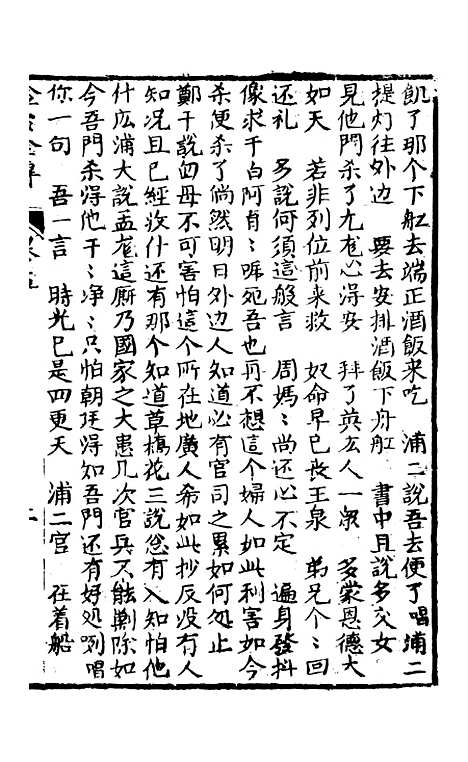 飢了那个下舡去端正酒飯来吃　浦二說吾去便了唱浦二
提灯往外边　要去安排酒飯下舟舡　書中且說多交女
見他門殺了九尨心淂安　拜了英䧺人一衆　多蒙恩德大
如天　若非列位前来救　奴命早已丧王泉　弟兄个〻回
还礼　多說何須這般言　周媽〻尚还心不定　遍身發抖
像求千白阿育〻嚇死吾也再不想這个婦人如此利害如今
杀便杀了倘然明日外边人知道必有官司之累如何処止
鄭千說母不可害怕這个所在地廣人希如此抄反没有人
知况且已經收什还有那个知道草橋花三說忩有人知怕他
什広浦大說孟尨這厮乃國家之大患几次官兵不能勦除如
今吾門杀淂他干〻净〻只怕朝廷淂知吾門还有好処唱
你一句　吾一言　時光已是四更天　浦二官　在着船
二